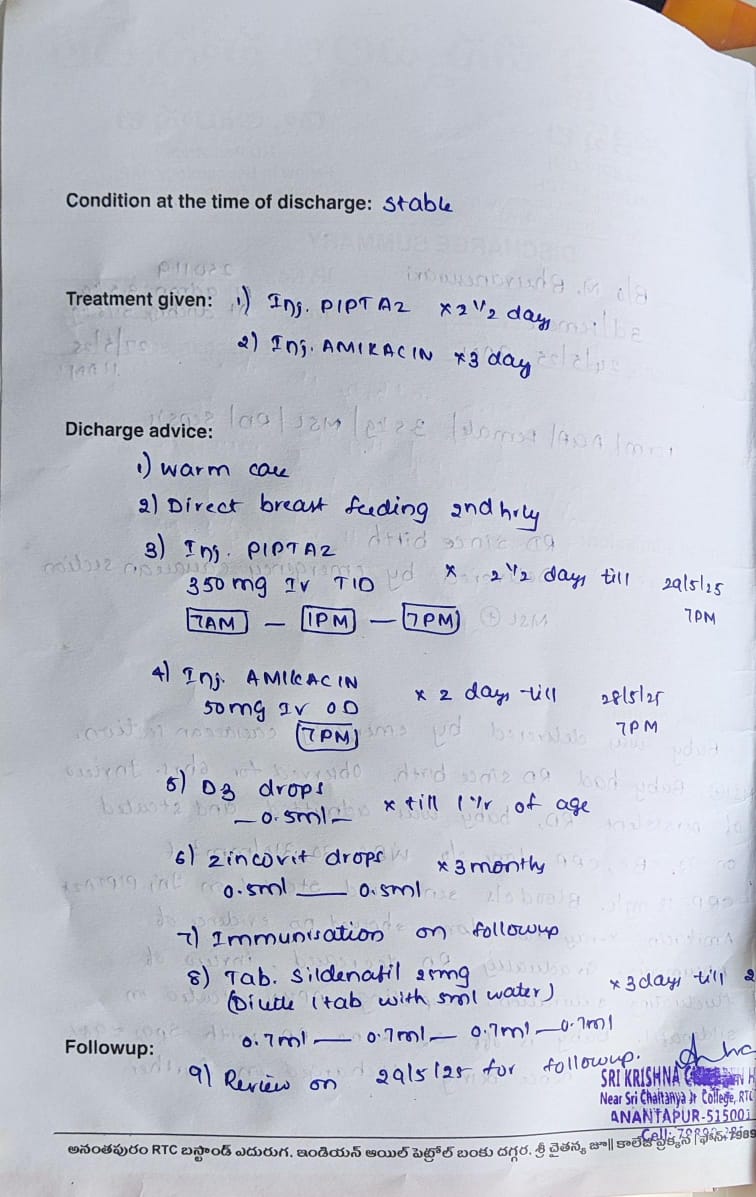 Condition at the time of discharge: stable
Treatment given: 1) Inj. PIPTAZ x 2 1/2 days
2) Inj. AMIKACIN x 3 day
Dicharge advice:
1) warm care
2) Direct breast feeding 2nd hrly
3) Inj. PIPTAZ
350 mg IV TID x 2 1/2 days till 29/5/25
7AM — 1PM — 7PM 7PM
4) Inj. AMIKACIN
50mg IV OD x 2 days till 28/5/25
7PM 7PM
5) D3 drops
— 0.5ml — x till 1 Yr of age
6) zincovit drops x 3 months
0.5ml — 0.5ml
7) Immunisation on followup
8) Tab. sildenafil 25mg x 3 days till 2
(Dilute 1 tab with 5ml water)
0.7ml — 0.7ml — 0.7ml — 0.7ml
Followup:
9) Review on 29/5/25 for followup.
SRI KRISHNA
Near Sri Chaitanya Jr College, RTC
ANANTAPUR-515001
Cell:
అనంతపురం RTC బస్టాండ్ ఎదురుగ. ఇండియన్ ఆయిల్ పెట్రోల్ బంకు దగ్గర. శ్రీ చైతన్య జూ|| కాలేజీ ప్రక్కన | ఫోన్: